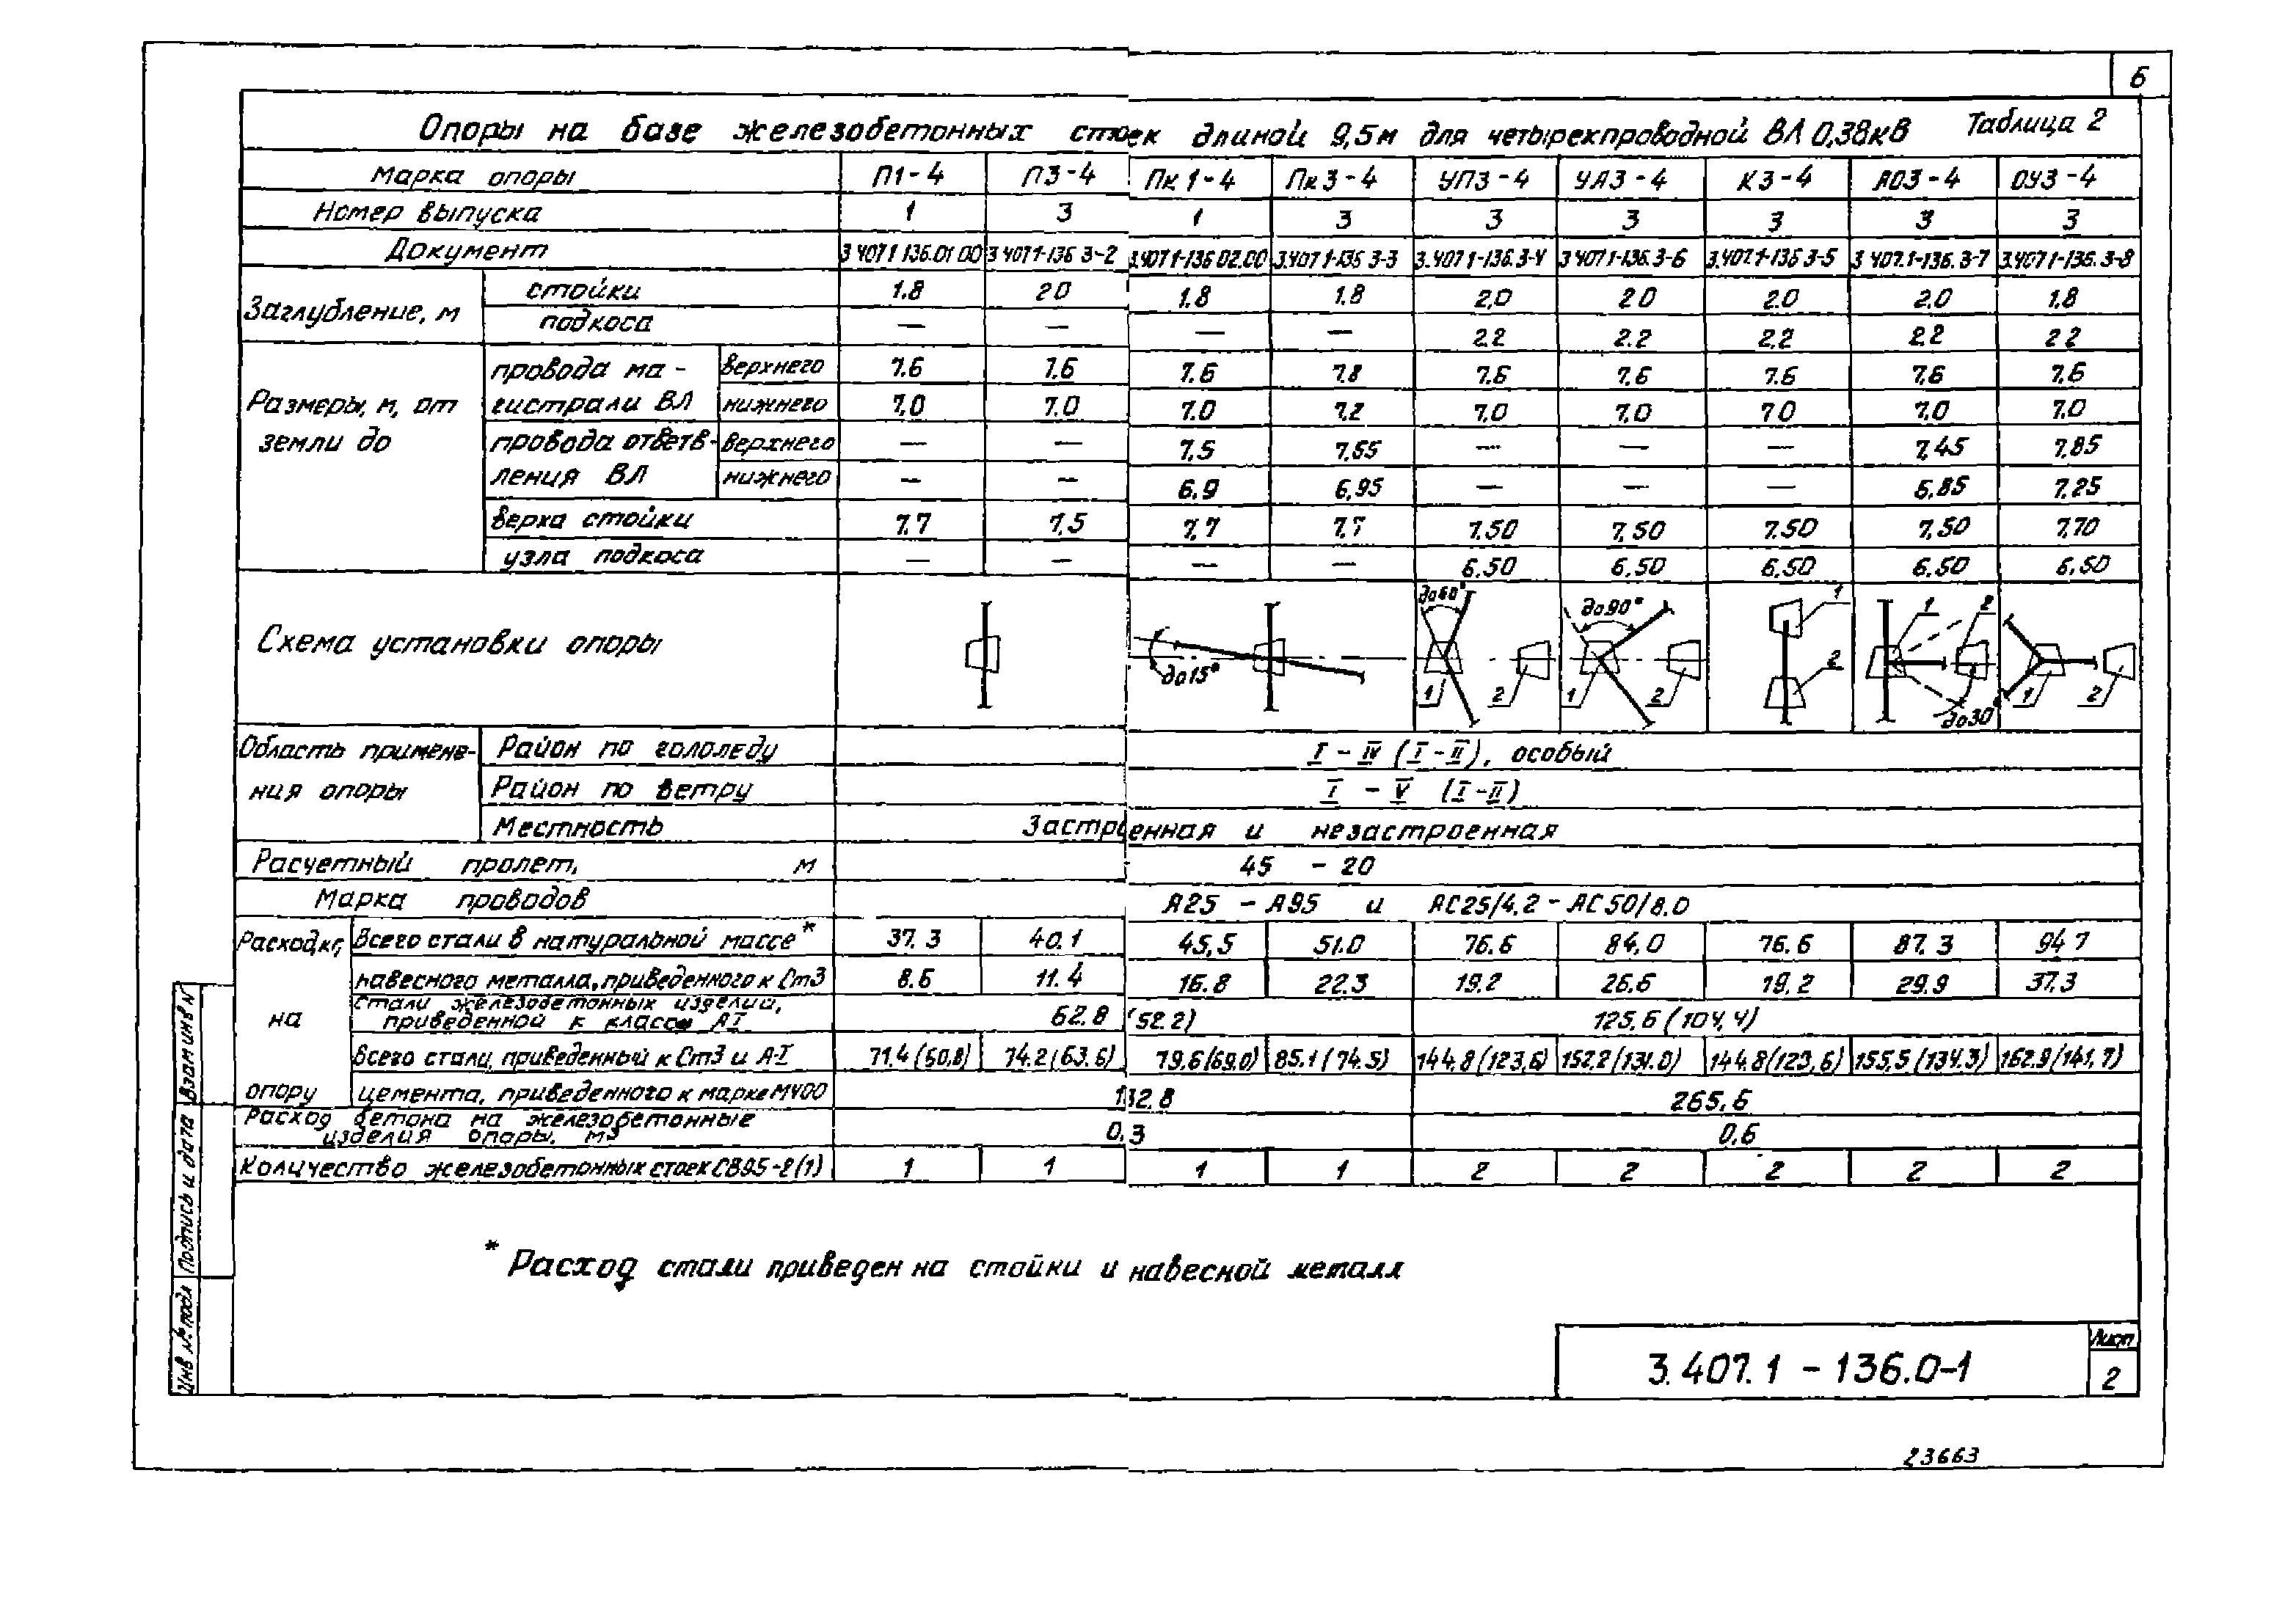 6
Опоры на базе железобетонных стоек длиной 9,5м для четырехпроводной ВЛ 0,38кВ Таблица 2
Марка опоры П1-4 П3-4 Пк 1-4 Пк 3-4 УП3-4 УА3-4 К3-4 АО3-4 ОУ3-4
Номер выпуска 1 3 1 3 3 3 3 3 3
Документ 3.407.1 136.01.00 3 407.1-136 3-2 3.407.1-136 02.00 3.407.1-136 3-3 3.407.1-136.3-4 3 407.1-136.3-6 3.407.1-136 3-5 3 407.1-136. 3-7 3.407.1-136. 3-8
Заглубление, м стойки 1.8 2.0 1.8 1.8 2,0 2.0 2.0 2.0 1.8
подкоса — — — — 2.2 2.2 2.2 2.2 2.2
Размеры, м, от земли до
провода магистрали ВЛ верхнего 7.6 7.6 7.6 7.8 7.6 7.6 7.6 7.6 7.6
нижнего 7,0 7.0 7.0 7.2 7.0 7.0 7.0 7.0 7.0
провода ответвления ВЛ верхнего — — 7,5 7,55 — — — 7,45 7,85
нижнего — — 6.9 6,95 — — — 6.85 7.25
верха стойки 7.7 7,5 7,7 7,7 7.50 7,50 7.50 7,50 7,70
узла подкоса — — — — 6.50 6.50 6.50 6.50 6.50
Схема установки опоры
до15° до60° 1 2 до90° 1 2 1 2 1 2 до30° 1 2
Область применения опоры
Район по гололеду I - IV (I-II), особый
Район по ветру I - V (I-II)
Местность Застроенная и незастроенная
Расчетный пролет, м 45 - 20
Марка проводов А25 - А95 и АС25/4,2 - АС50/8.0
Расход,кг, на опору
Всего стали в натуральной массе* 37.3 40.1 45,5 51.0 76.6 84,0 76.6 87.3 94.7
навесного металла, приведенного к Ст3 8.6 11.4 16.8 22.3 19.2 26.6 19.2 29.9 37.3
Стали железобетонных изделий,
приведенной к классу АI 62.8 (52.2) 125,6 (104,4)
всего стали, приведенный к Ст3 и А-I 71.4 (60,8) 74.2 (63.6) 79.6 (69.0) 85.1 (74.5) 144,8 (123,6) 152,2 (131.0) 144.8 (123,6) 155,5 (134.3) 162.9 (141,7)
цемента, приведенного к марке М400 132,8 265,6
Расход бетона на железобетонные
изделия опоры, м3 0,3 0,6
Количество железобетонных стоек СВ95-2(1) 1 1 1 1 2 2 2 2 2
* Расход стали приведен на стойки и навесной металл
Инв № подл Подпись и дата Взам инв N
3.407.1 - 136.0-1
Лист
2
23663